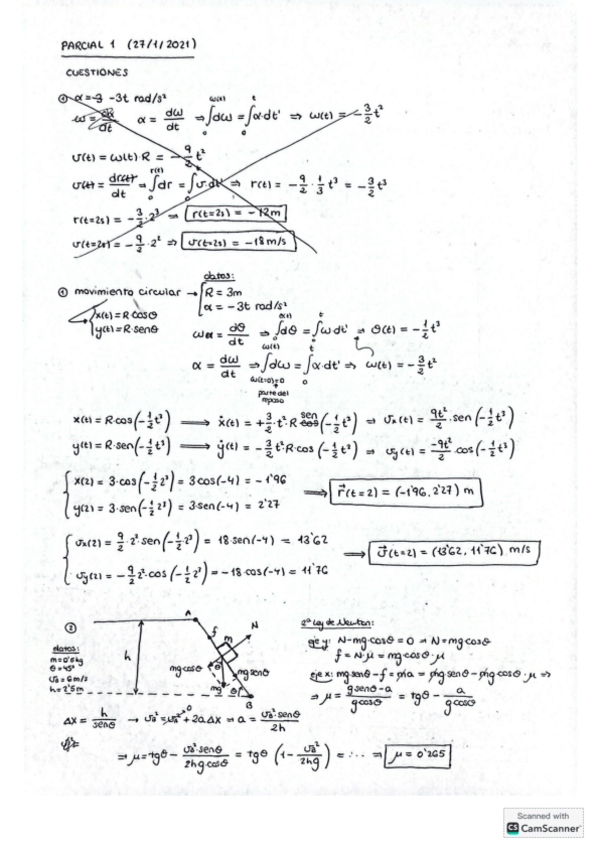 PARCIAL 1 (27/1/2021)
CUESTIONES
① α = -3 -3t rad/s²
ω = dα/dt α = dω/dt ⇒ ∫₀^ω(t) dω = ∫₀^t α·dt' ⇒ ω(t) = -3/2 t²
v(t) = ω(t)·R = -9/2 t²
v(t) = dr(t)/dt ⇒ ∫₀^r(t) dr = ∫₀ v·dt' ⇒ r(t) = -9/2 · 1/3 t³ = -3/2 t³
r(t=2s) = -3/2 · 2³ ⇒ r(t=2s) = -12m
v(t=2s) = -9/2 · 2² ⇒ v(t=2s) = -18m/s
datos:
① movimiento circular → R = 3m
α = -3t rad/s²
x(t) = R cosθ
y(t) = R senθ
ω = dθ/dt ⇒ ∫₀^θ(t) dθ = ∫₀^t ω dt' ⇒ θ(t) = -1/2 t³
α = dω/dt ⇒ ∫_ω(t=0)=0^ω(t) dω = ∫₀^t α·dt' ⇒ ω(t) = -3/2 t²
parte del
reposo
x(t) = R·cos(-1/2 t³) ⟹ ẋ(t) = +3/2 · t² · R sen(-1/2 t³) ⇒ vx(t) = 9t²/2 · sen(-1/2 t³)
y(t) = R·sen(-1/2 t³) ⟹ ẏ(t) = -3/2 t² · R cos(-1/2 t³) ⇒ vy(t) = -9t²/2 · cos(-1/2 t³)
x(2) = 3·cos(-1/2 2³) = 3 cos(-4) = -1'96
y(2) = 3·sen(-1/2 2³) = 3·sen(-4) = 2'27
⟹ r⃗(t=2) = (-1'96, 2'27) m
vx(2) = 9/2 · 2² · sen(-1/2 2³) = 18·sen(-4) = 13'62
vy(2) = -9/2 2² · cos(-1/2 2³) = -18·cos(-4) = 11'76
⟹ v⃗(t=2) = (13'62, 11'76) m/s
②
A
N
f
m
h
mg cosθ
mg senθ
mg
θ
B
datos:
m = 0'5kg
θ = 45°
v_B = 6m/s
h = 2'5m
2ª Ley de Newton:
eje y: N - mg·cosθ = 0 ⇒ N = mg cosθ
f = N·μ = mg·cosθ·μ
eje x: mg senθ - f = ma ⇒ mg senθ - mg cosθ·μ ⇒
⇒ μ = g senθ - a/g cosθ = tgθ - a/g cosθ
Δx = h/senθ → v_B² = v_A² + 2aΔx ⇒ a = v_B² senθ/2h
⇒ μ = tgθ - v_B² senθ/2hg cosθ = tgθ (1 - v_B²/2hg) = ... ⇒ μ = 0'265
Scanned with
CS CamScanner